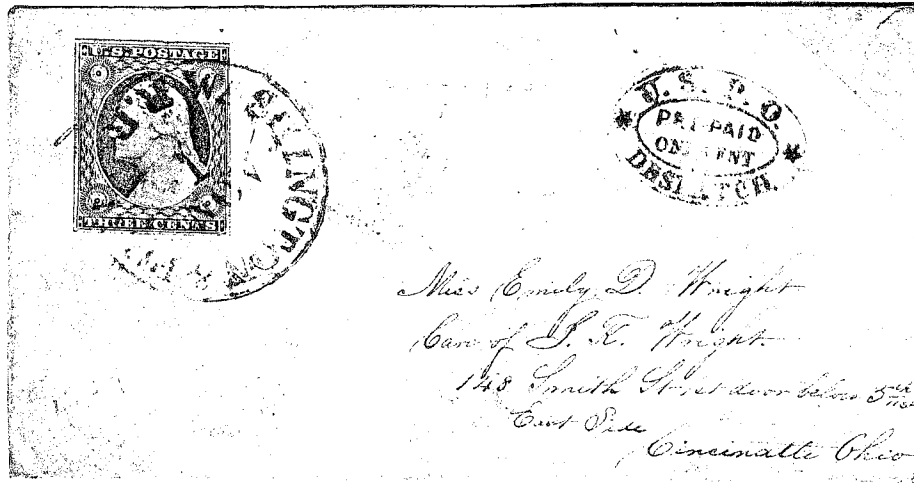 U.S. POSTAGE
THREE CENTS
WASHINGTON
U. S. P. O.
PRE-PAID
ONE CENT
DESPATCH.
Miss Emily D. Wright
Care of S. T. Wright.
148 Smith Street door below 5th
East Side
Cincinatte Ohio